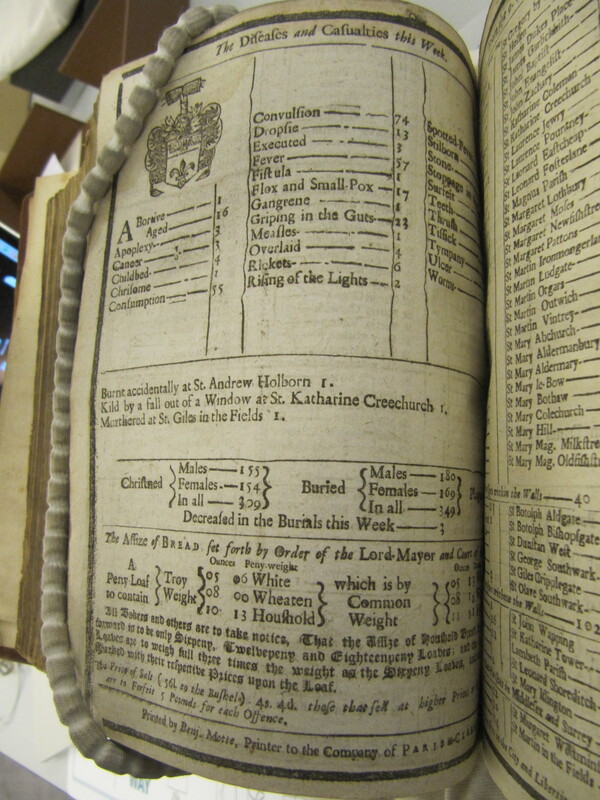 The Diseases and Casualties this Week.
ABortive 1
Aged 16
Apoplexy 3
Cancer 3
Childbed 4
Chrisome 1
Consumption 55
Convulsion 74
Dropsie 13
Executed 3
Fever 57
Fistula 1
Flox and Small-Pox 17
Gangrene 1
Griping in the Guts 23
Measles 1
Overlaid 4
Rickets 6
Rising of the Lights 2
Spotted-Fever
Stilborn
Stone
Stoppage in
Surfeit
Teeth
Thrush
Tissick
Tympany
Ulcer
Worms
Burnt accidentally at St. Andrew Holborn 1.
Kild by a fall out of a Window at St. Katharine Creechurch 1.
Murthered at St. Giles in the Fields 1.
Christned
Males 155
Females 154
In all 309
Buried
Males 180
Females 169
In all 349
Decreased in the Burials this Week 3
The Assize of BREAD set forth by Order of the Lord-Mayor and Court of
Ounces Peny-weight
A Peny Loaf to contain
Troy Weight
05 06 White
08 00 Wheaten
10 13 Houshold
which is by Common Weight
05
08
11
All Bakers and others are to take notice, That the Assize of Houshold
forward is to be only Sixpeny, Twelvepeny and Eighteenpeny Loaves; and
Loaves are to weigh full three times the weight as the Sixpeny Loaves,
Marked with their respective Prices upon the Loaf.
The Price of Salt (56l. to the Bushel) 4s. 4d. those that sell at higher Price
are to Forfeit 5 Pounds for each Offence.
Printed by Benj. Motte, Printer to the Company of PARISH-CLER
St Katharine Coleman
St Katharine Creechurch
St Laurence Jewry
St Laurence Pountney
St Leonard Eastcheap
St Leonard Fosterlane
St Magnus Parish
St Margaret Lothbury
St Margaret Moses
St Margaret Newfishstre
St Margaret Pattons
St Martin Ironmongerlan
St Martin Ludgate
St Martin Orgars
St Martin Outwich
St Martin Vintrey
St Mary Abchurch
St Mary Aldermanbury
St Mary Aldermary
St Mary le-Bow
St Mary Bothaw
St Mary Colechurch
St Mary Hill
St Mary Mag. Milkstre
St Mary Mag. Oldfishst
within the Walls 40
St Botolph Aldgate
St Botolph Bishopsgate
St Dunstan West
St George Southwark
St Giles Cripplegate
St Olave Southwark
the Walls 102
St John Wapping
St Katharine Tower
Lambeth Parish
St Leonard Shoreditch
St Mary Islington
in Middlesex and Surrey
St Margaret Westminst
St Martin in the Fields